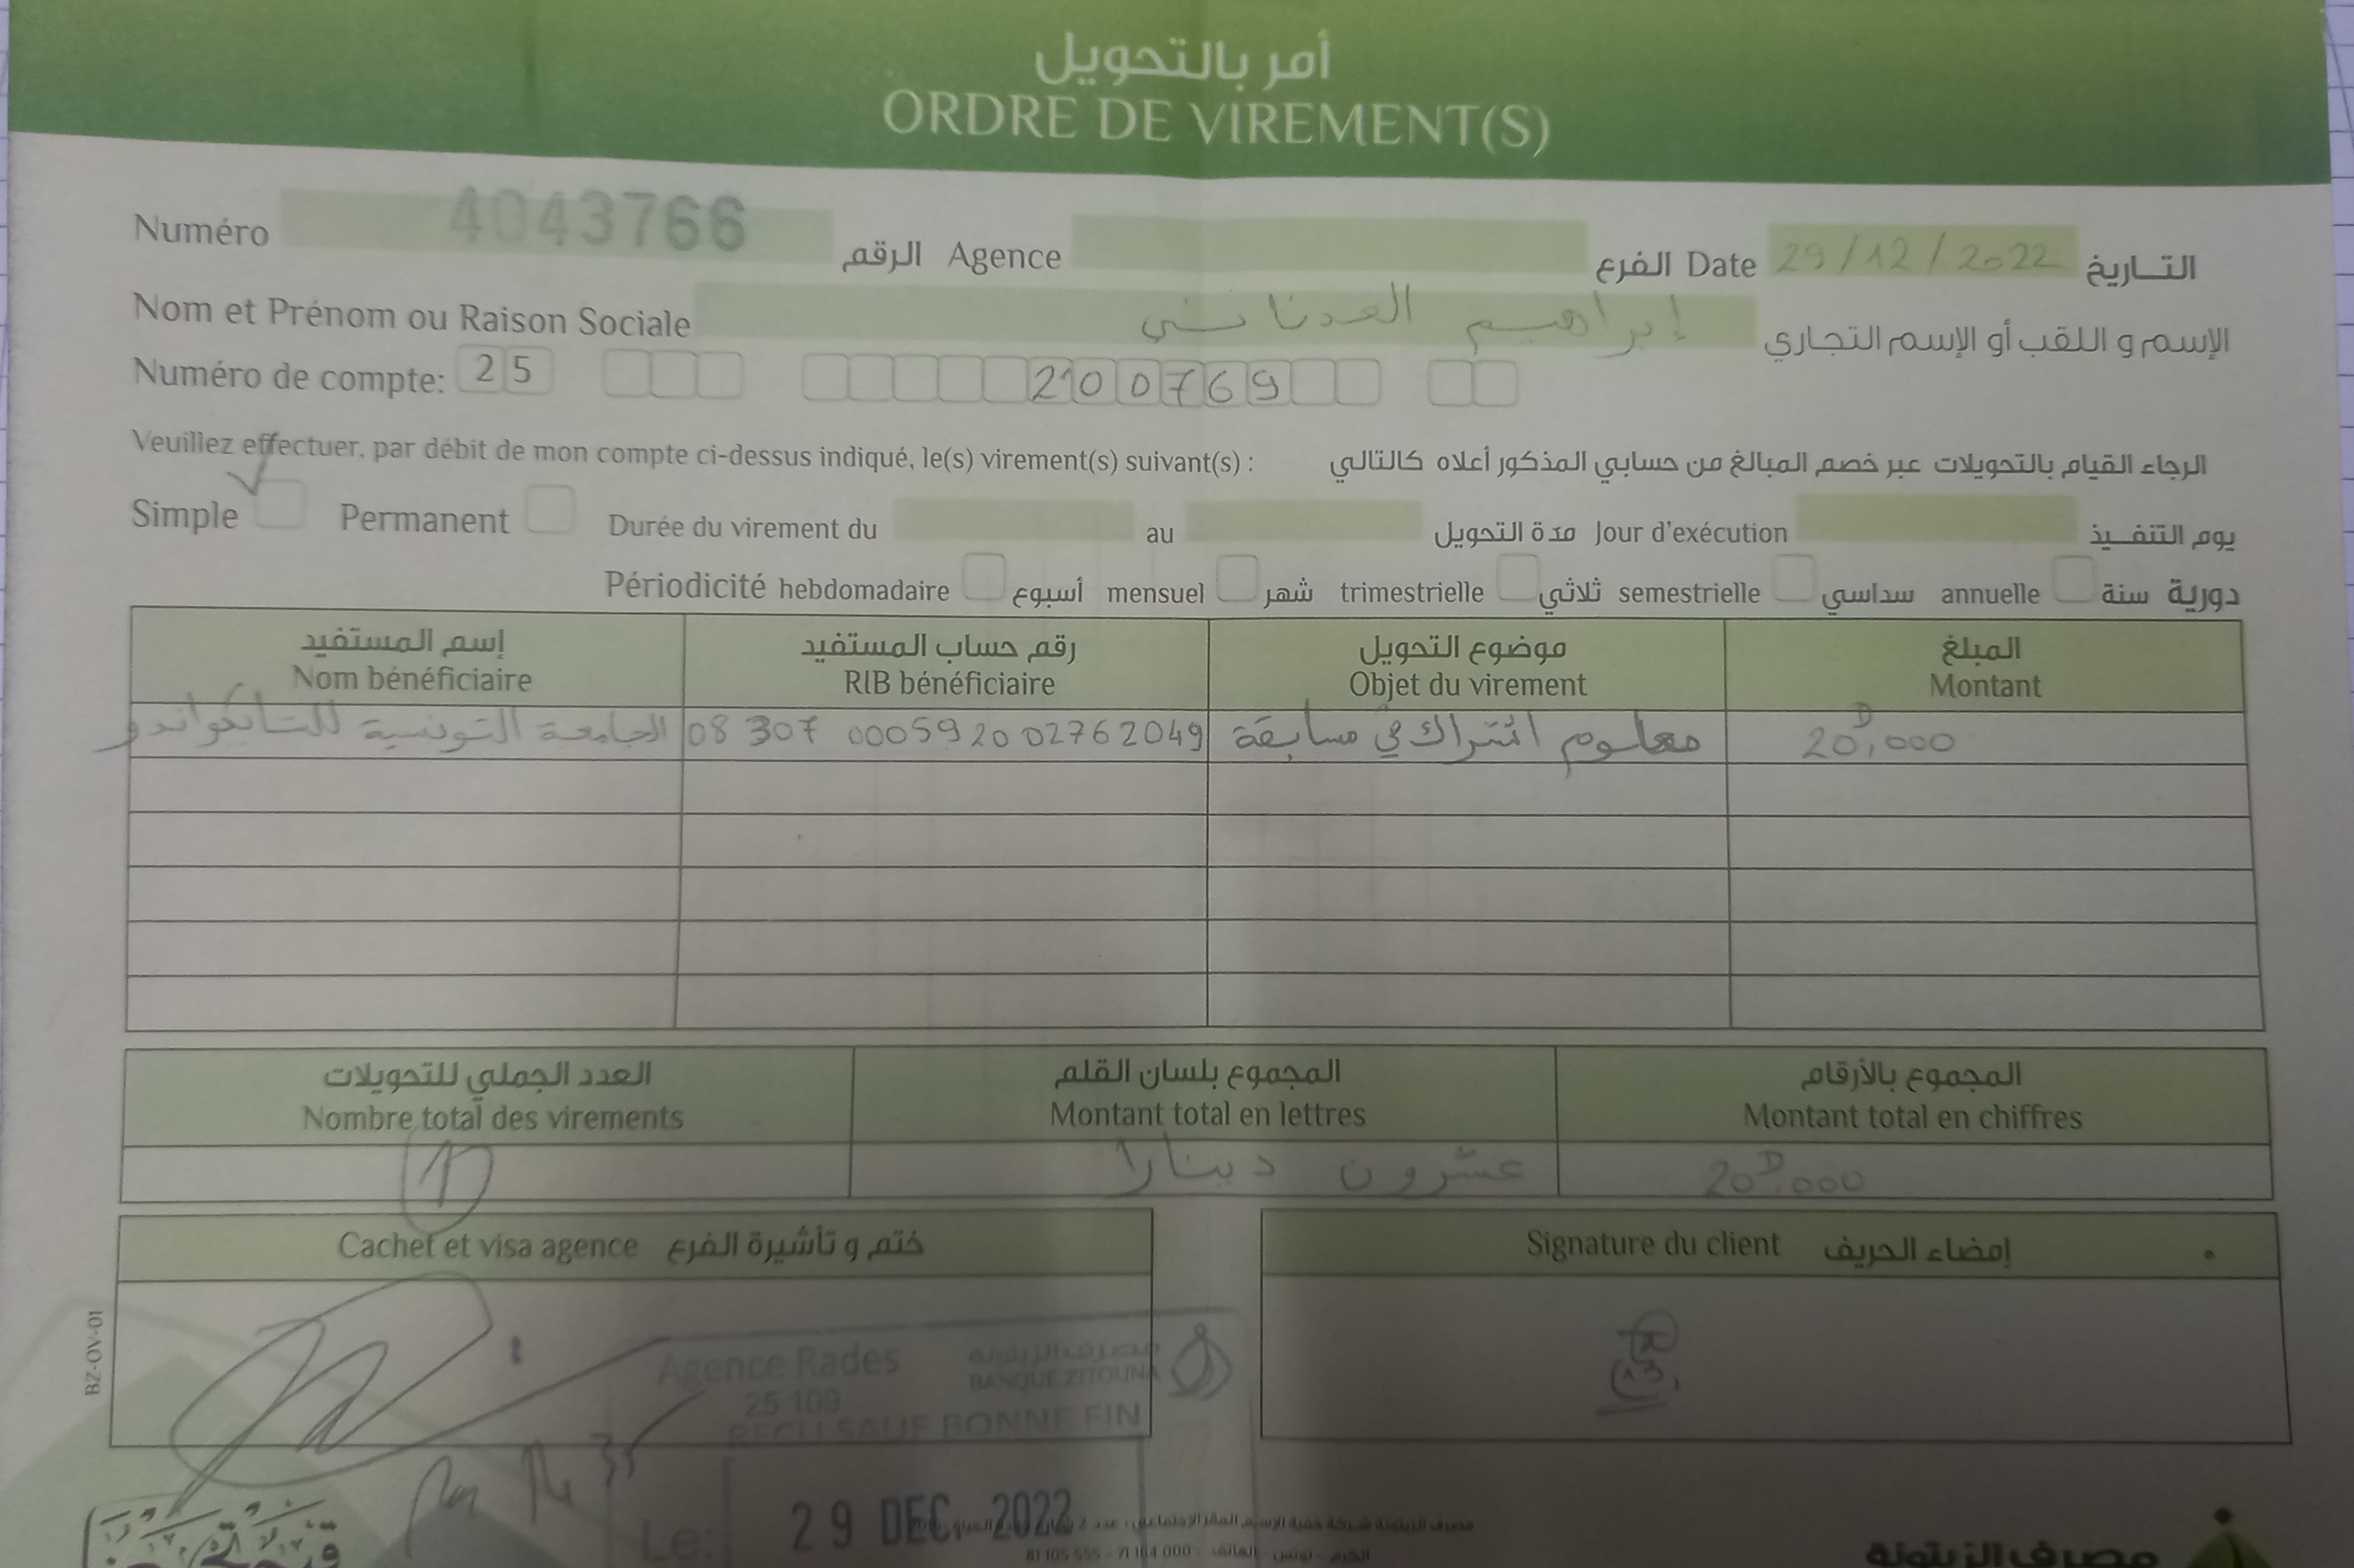 أمر بالتحويل
ORDRE DE VIREMENT(S)
Numéro 4043766 الرقم Agence الفرع Date 29/12/2022 التاريخ
Nom et Prénom ou Raison Sociale إبراهيم العدناني الإسم و اللقب أو الإسم التجاري
Numéro de compte: 25 2100769
Veuillez effectuer, par débit de mon compte ci-dessus indiqué, le(s) virement(s) suivant(s) : الرجاء القيام بالتحويلات عبر خصم المبالغ من حسابي المذكور أعلاه كالتالي
Simple Permanent Durée du virement du au مدة التحويل Jour d'exécution يوم التنفيذ
Périodicité hebdomadaire أسبوع mensuel شهر trimestrielle ثلاثي semestrielle سداسي annuelle سنة دورية
إسم المستفيد رقم حساب المستفيد موضوع التحويل المبلغ
Nom bénéficiaire RIB bénéficiaire Objet du virement Montant
الجامعة التونسية للتايكواندو 08 307 000592002762049 معلوم اشتراك في مسابقة 20D,000
العدد الجملي للتحويلات المجموع بلسان القلم المجموع بالأرقام
Nombre total des virements Montant total en lettres Montant total en chiffres
1 عشرون دينارا 20D.000
Cachet et visa agence ختم و تأشيرة الفرع Signature du client إمضاء الحريف
BZ-OV-01
Agence Rades مصرف الزيتونة
25 109 BANQUE ZITOUNA
RECU SAUF BONNE FIN
Le: 29 DEC. 2022
81 105 555 - 71 164 000
مصرف الزيتونة